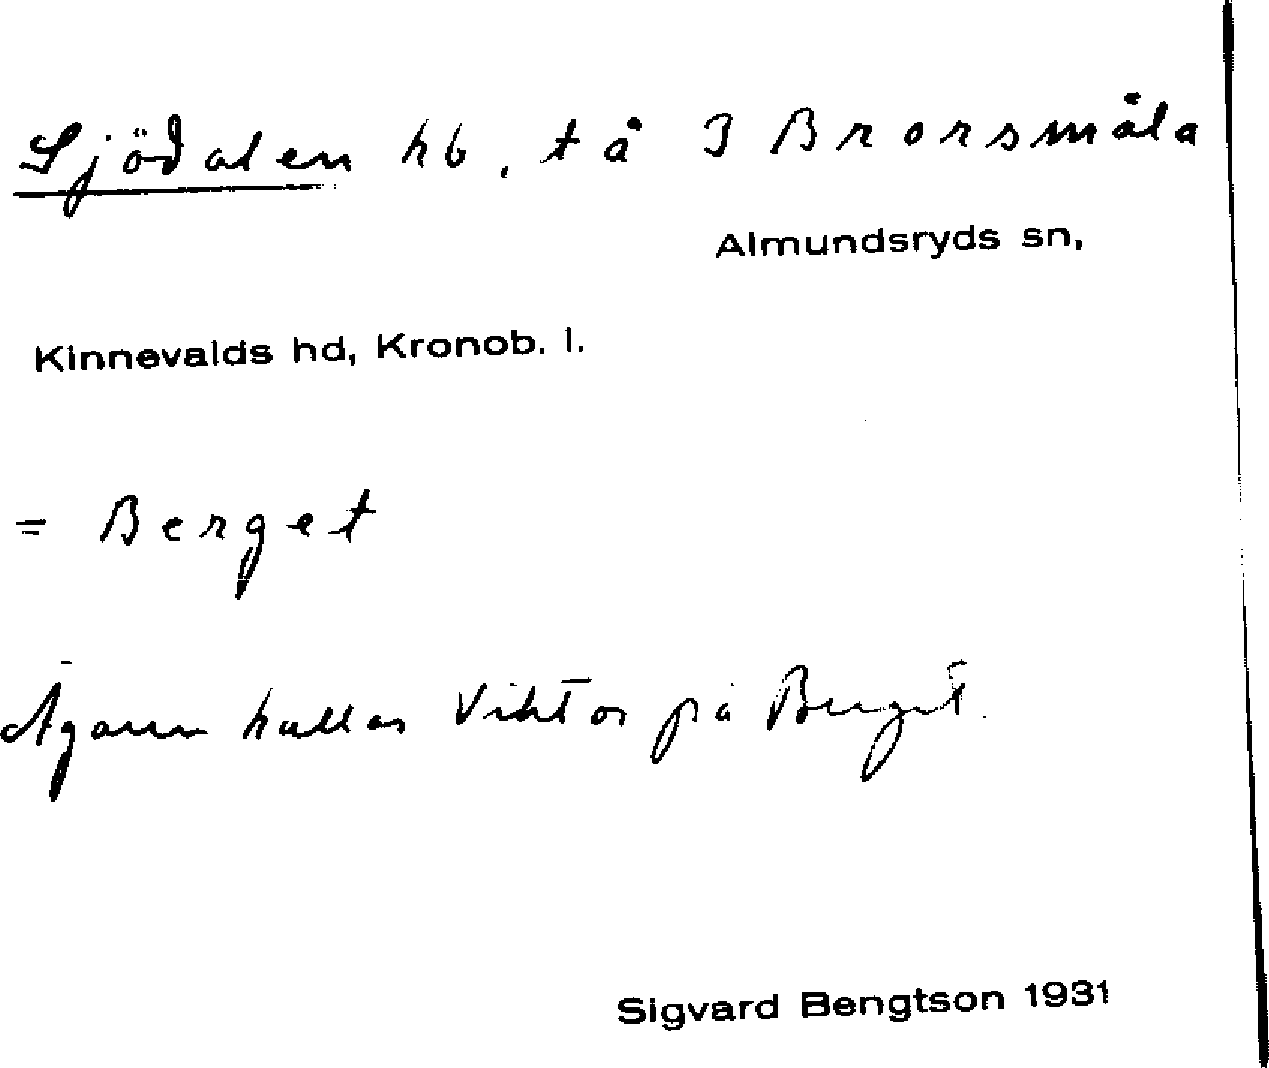 Sjödalen hb, tå 3 Brorsmåla
Almundsryds sn,
Kinnevalds hd, Kronob. l.
= Berget
Ägaren kallas Viktor på Berget.
Sigvard Bengtson 1931